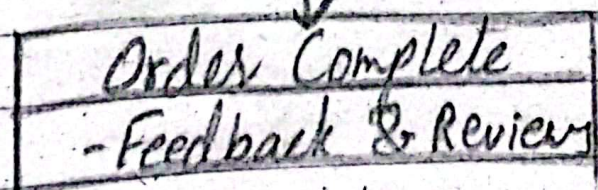 Order Complete
- Feedback & Review